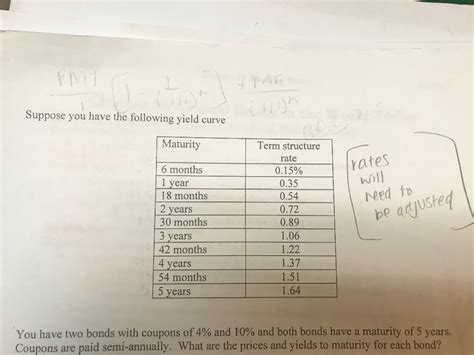 PMT
Suppose you have the following yield curve
Maturity Term structure
rate
6 months 0.15%
1 year 0.35
18 months 0.54
2 years 0.72
30 months 0.89
3 years 1.06
42 months 1.22
4 years 1.37
54 months 1.51
5 years 1.64
rates
will
need to
be adjusted
You have two bonds with coupons of 4% and 10% and both bonds have a maturity of 5 years.
Coupons are paid semi-annually. What are the prices and yields to maturity for each bond?